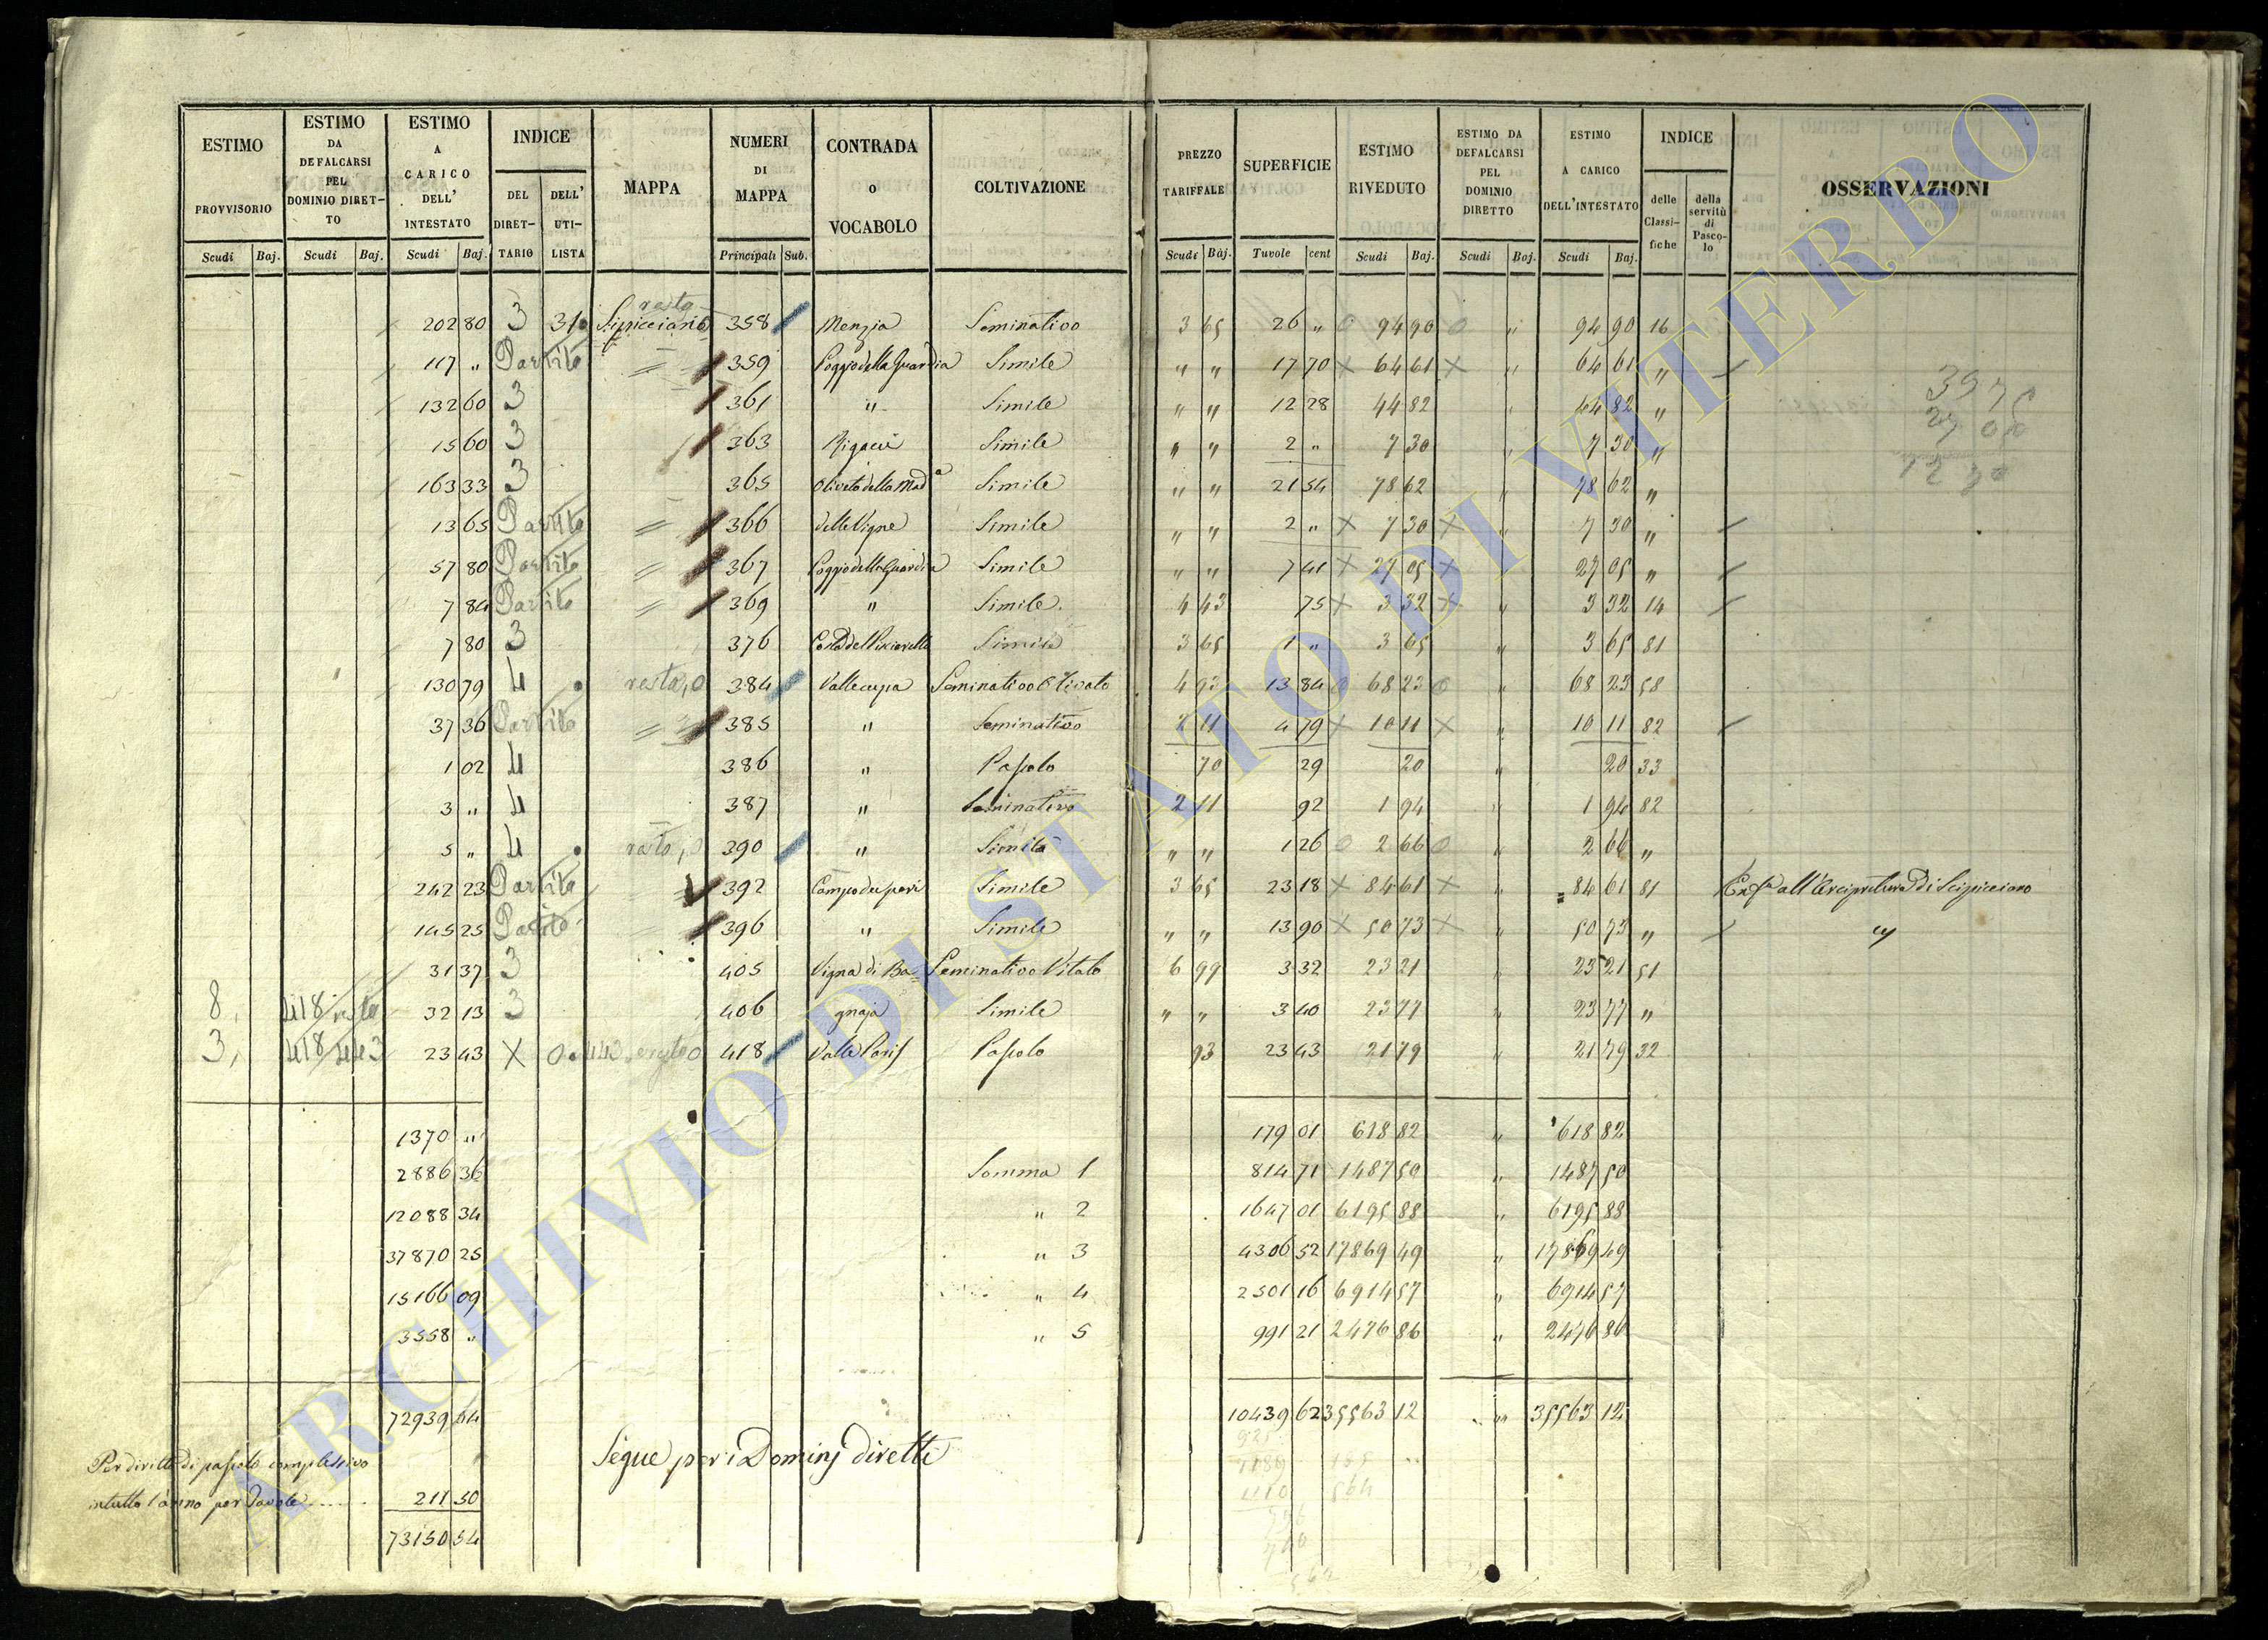 ESTIMO PROVVISORIO | ESTIMO DA DEFALCARSI PEL DOMINIO DIRETTO | ESTIMO A CARICO DELL' INTESTATO | INDICE DEL DIRETTARIO | DELL' UTILISTA | MAPPA | NUMERI DI MAPPA | CONTRADA o VOCABOLO | COLTIVAZIONE | PREZZO TARIFFALE | SUPERFICIE | ESTIMO RIVEDUTO | ESTIMO DA DEFALCARSI PEL DOMINIO DIRETTO | ESTIMO A CARICO DELL'INTESTATO | INDICE delle Classifiche | della servitù di Pascolo | OSSERVAZIONI
Scudi Baj. | Scudi Baj. | Scudi Baj. | Principali Sub. | Scudi Baj. | Tavole cent | Scudi Baj. | Scudi Baj. | Scudi Baj.
202 80 3 310 resto 358 Menzia Seminativo 3 65 26 " 0 94 90 0 " 94 90 16
117 " Partito = 359 Poggio della Guardia Simile " " 17 70 x 64 61 x " 64 61 "
132 60 3 361 " Simile " " 12 28 44 82 " 44 82 "
15 60 3 363 Simile " " 2 " 7 30 " 7 30 "
163 33 3 365 Oliveto della Mada Simile " " 21 54 78 62 " 78 62 "
13 65 Partito = 366 delle Vigne Simile " " 2 " x 7 30 x " 7 30 "
57 80 Partito = 367 Poggio della Guardia Simile " " 7 41 x 27 05 x " 27 05 "
7 84 Partito = 369 " Simile 4 43 75 x 3 32 x " 3 32 14
7 80 3 376 Simile 3 65 1 " 3 65 " 3 65 81
130 79 4 resto, 0 384 Vallecupa Seminativo Olivato 4 93 13 84 0 68 23 0 " 68 23 58
37 36 Partito = 385 " Seminativo 2 11 4 79 x 10 11 x " 10 11 82
1 02 4 386 " Pascolo 70 29 20 " 20 33
3 " 4 387 " Seminativo 2 11 92 1 94 " 1 94 82
5 " 4 resto, 0 390 " Simile " " 1 26 0 2 66 0 " 2 66 "
242 23 Partito 392 Simile 3 65 23 18 x 84 61 x " 84 61 81 all'Arcipretura di Scipicciano
145 25 Partito 396 " Simile " " 13 90 x 50 73 x " 50 73 " "
31 37 3 405 Vigna di Ba- Seminativo Vitato 6 99 3 32 23 21 " 23 21 51
8, 418/resto 32 13 3 406 gnaja Simile " " 3 40 23 77 " 23 77 "
3, 418/443 23 43 X 0 443 0 418 Valle Paris Pascolo 93 23 43 21 79 " 21 79 32
39 75
27 05
12 70
1370 " 179 01 618 82 " 618 82
2886 36 Somma 1 814 71 1487 50 " 1487 50
12088 34 " 2 1647 01 6195 88 " 6195 88
37870 25 " 3 4306 52 17869 49 " 17869 49
15166 09 " 4 2501 16 6914 57 " 6914 57
3558 " " 5 991 21 2476 86 " 2476 86
72939 04 10439 62 35563 12 " 35563 12
Segue per i Dominj diretti
Per diritto di pascolo complessivo
in tutto l'anno per Tavole ..... 211 50
73150 54
ARCHIVIO DI STATO DI VITERBO